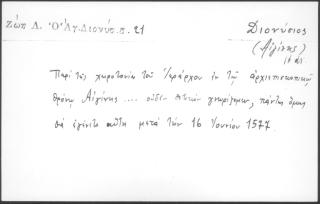 Ζώη Δ. "Ὁ Ἅγ. Διονύσ. σ. 21
Διονύσιος
(Αἰγίνης)
16 αἰ.
Περί τῆς χειροτονίας τοῦ Ἱεράρχου ἐν τῷ ἀρχιεπισκοπικῷ
θρόνῳ Αἰγίνης .... οὐδέν θετικόν γνωρίζομεν, πάντως ὅμως
θά ἐγένετο αὕτη μετά τήν 16 Ἰουνίου 1577.